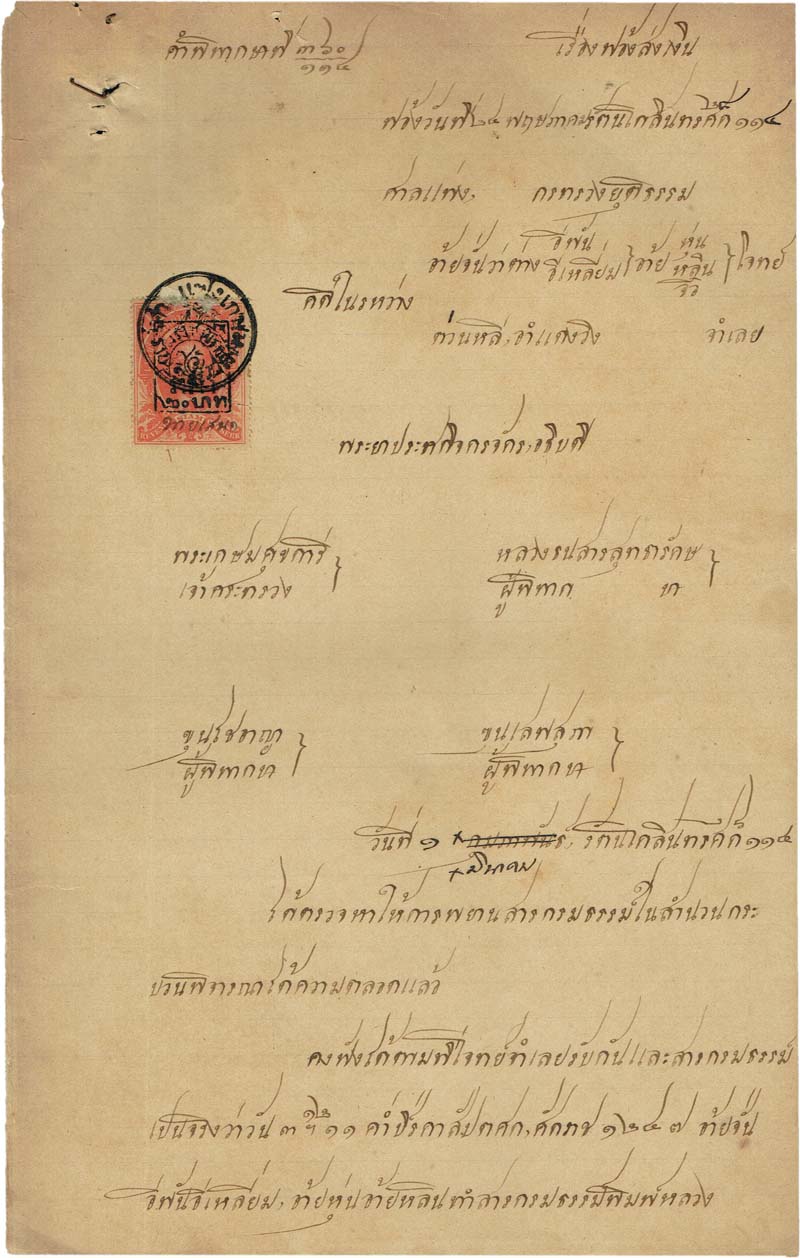 คำพิพากษาที่ ๓๖๐/๑๑๔
เรื่องฟ้องส่งเงิน
ฟ้องวันที่ ๒๔ พฤษภาคม รัตนโกสินทรศก ๑๑๔
ศาลแพ่ง, กระทรวงยุติธรรม
อ้ายจั่นว่าต่าง อีพัน อีเหลี่ยม อ้าย หุ่น หลิน จิ๋ว โจทย์
คดีในรหว่าง
ก๋วนหลี, อำแดงวิง จำเลย
๒๐ บาท
พระยาประสิทธิจักร, อธิบดี
พระเกษมศุขการี
เจ้ากระทรวง
หลวงธนสารสุทธารักษ
ผู้พิพากษา
ขุนโชทาญา
ผู้พิพากษา
ขุนเลขสุภา
ผู้พิพากษา
วันที่ ๑ กุมภาพันธ์, รัตนโกสินทรศก ๑๑๔
มีนาคม
ได้ตรวจหาให้การพยานสารกรมธรรม์ในสำนวนกระ
บวนพิจารณาได้ความตลอดแล้ว
คงฟังได้ตามที่โจทย์จำเลยรับกันและสารกรมธรรม์
เป็นจริงว่าวัน ๓ ฯ ๑๑ ค่ำ ปีรกาสัปตศก, ศักราช ๑๒๔๗ อ้ายจั่น
อีพันอีเหลี่ยม, อ้ายหุ่นอ้ายหลินทำสารกรมธรรม์พิมพ์หลวง